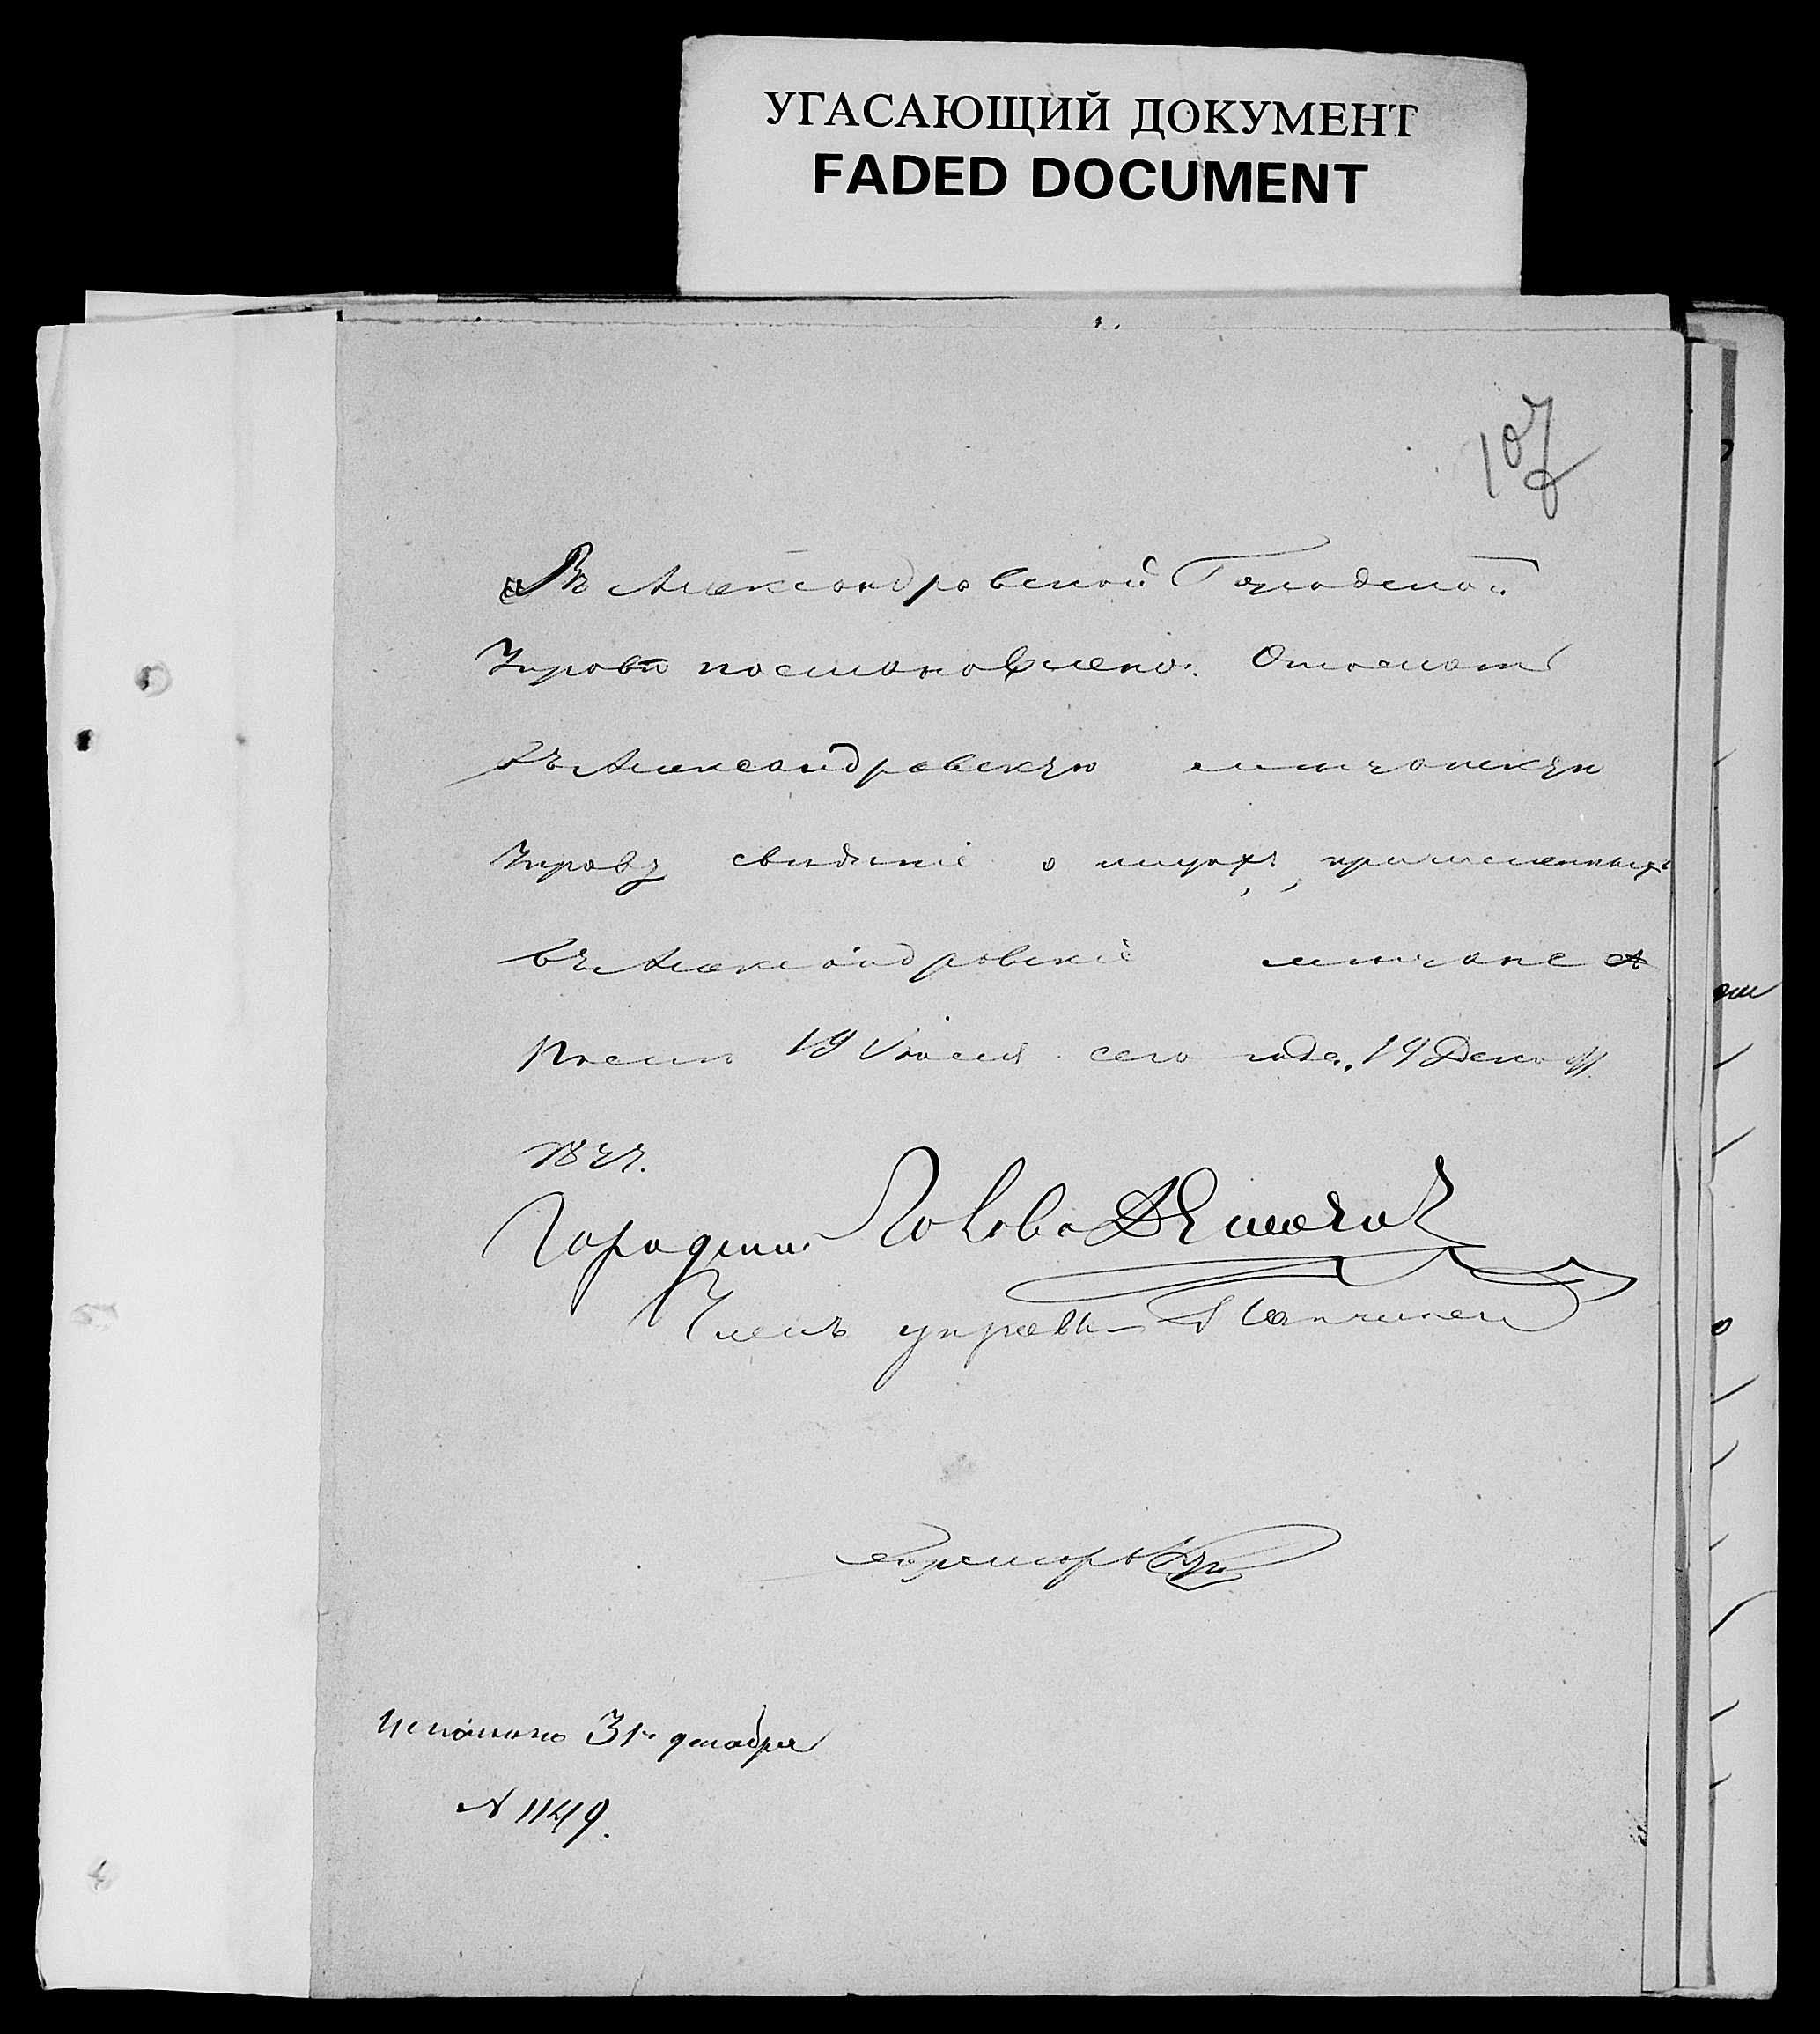 УГАСАЮЩИЙ ДОКУМЕНТ
FADED DOCUMENT
107
Въ Александровской Городской
Управѣ постановлено: Отослать
въ Александровскую мѣщанскую
Управу свѣдѣніе о лицахъ, причисленныхъ
въ Александровскіе мѣщане съ
19 Іюля сего года. 19 Дека
1877.
Городской Голова
Членъ управы
Секретарь
Исполнено 31го декабря
№ 1149.